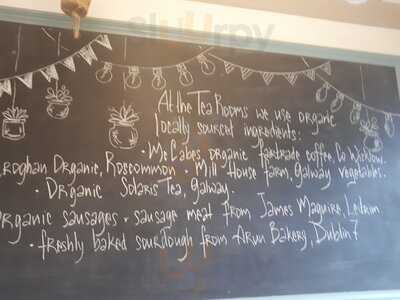 At the Tea Rooms we use organic
locally sourced ingredients:
• McCabes, organic fairtrade coffee, Co Wicklow.
roghan Organic, Roscommon • Mill House farm, galway vegetables.
• Organic Solaris Tea, galway.
Organic sausages • sausage meat from James Maguire, Leitrim
• freshly baked sourdough from Arun Bakery, Dublin 7